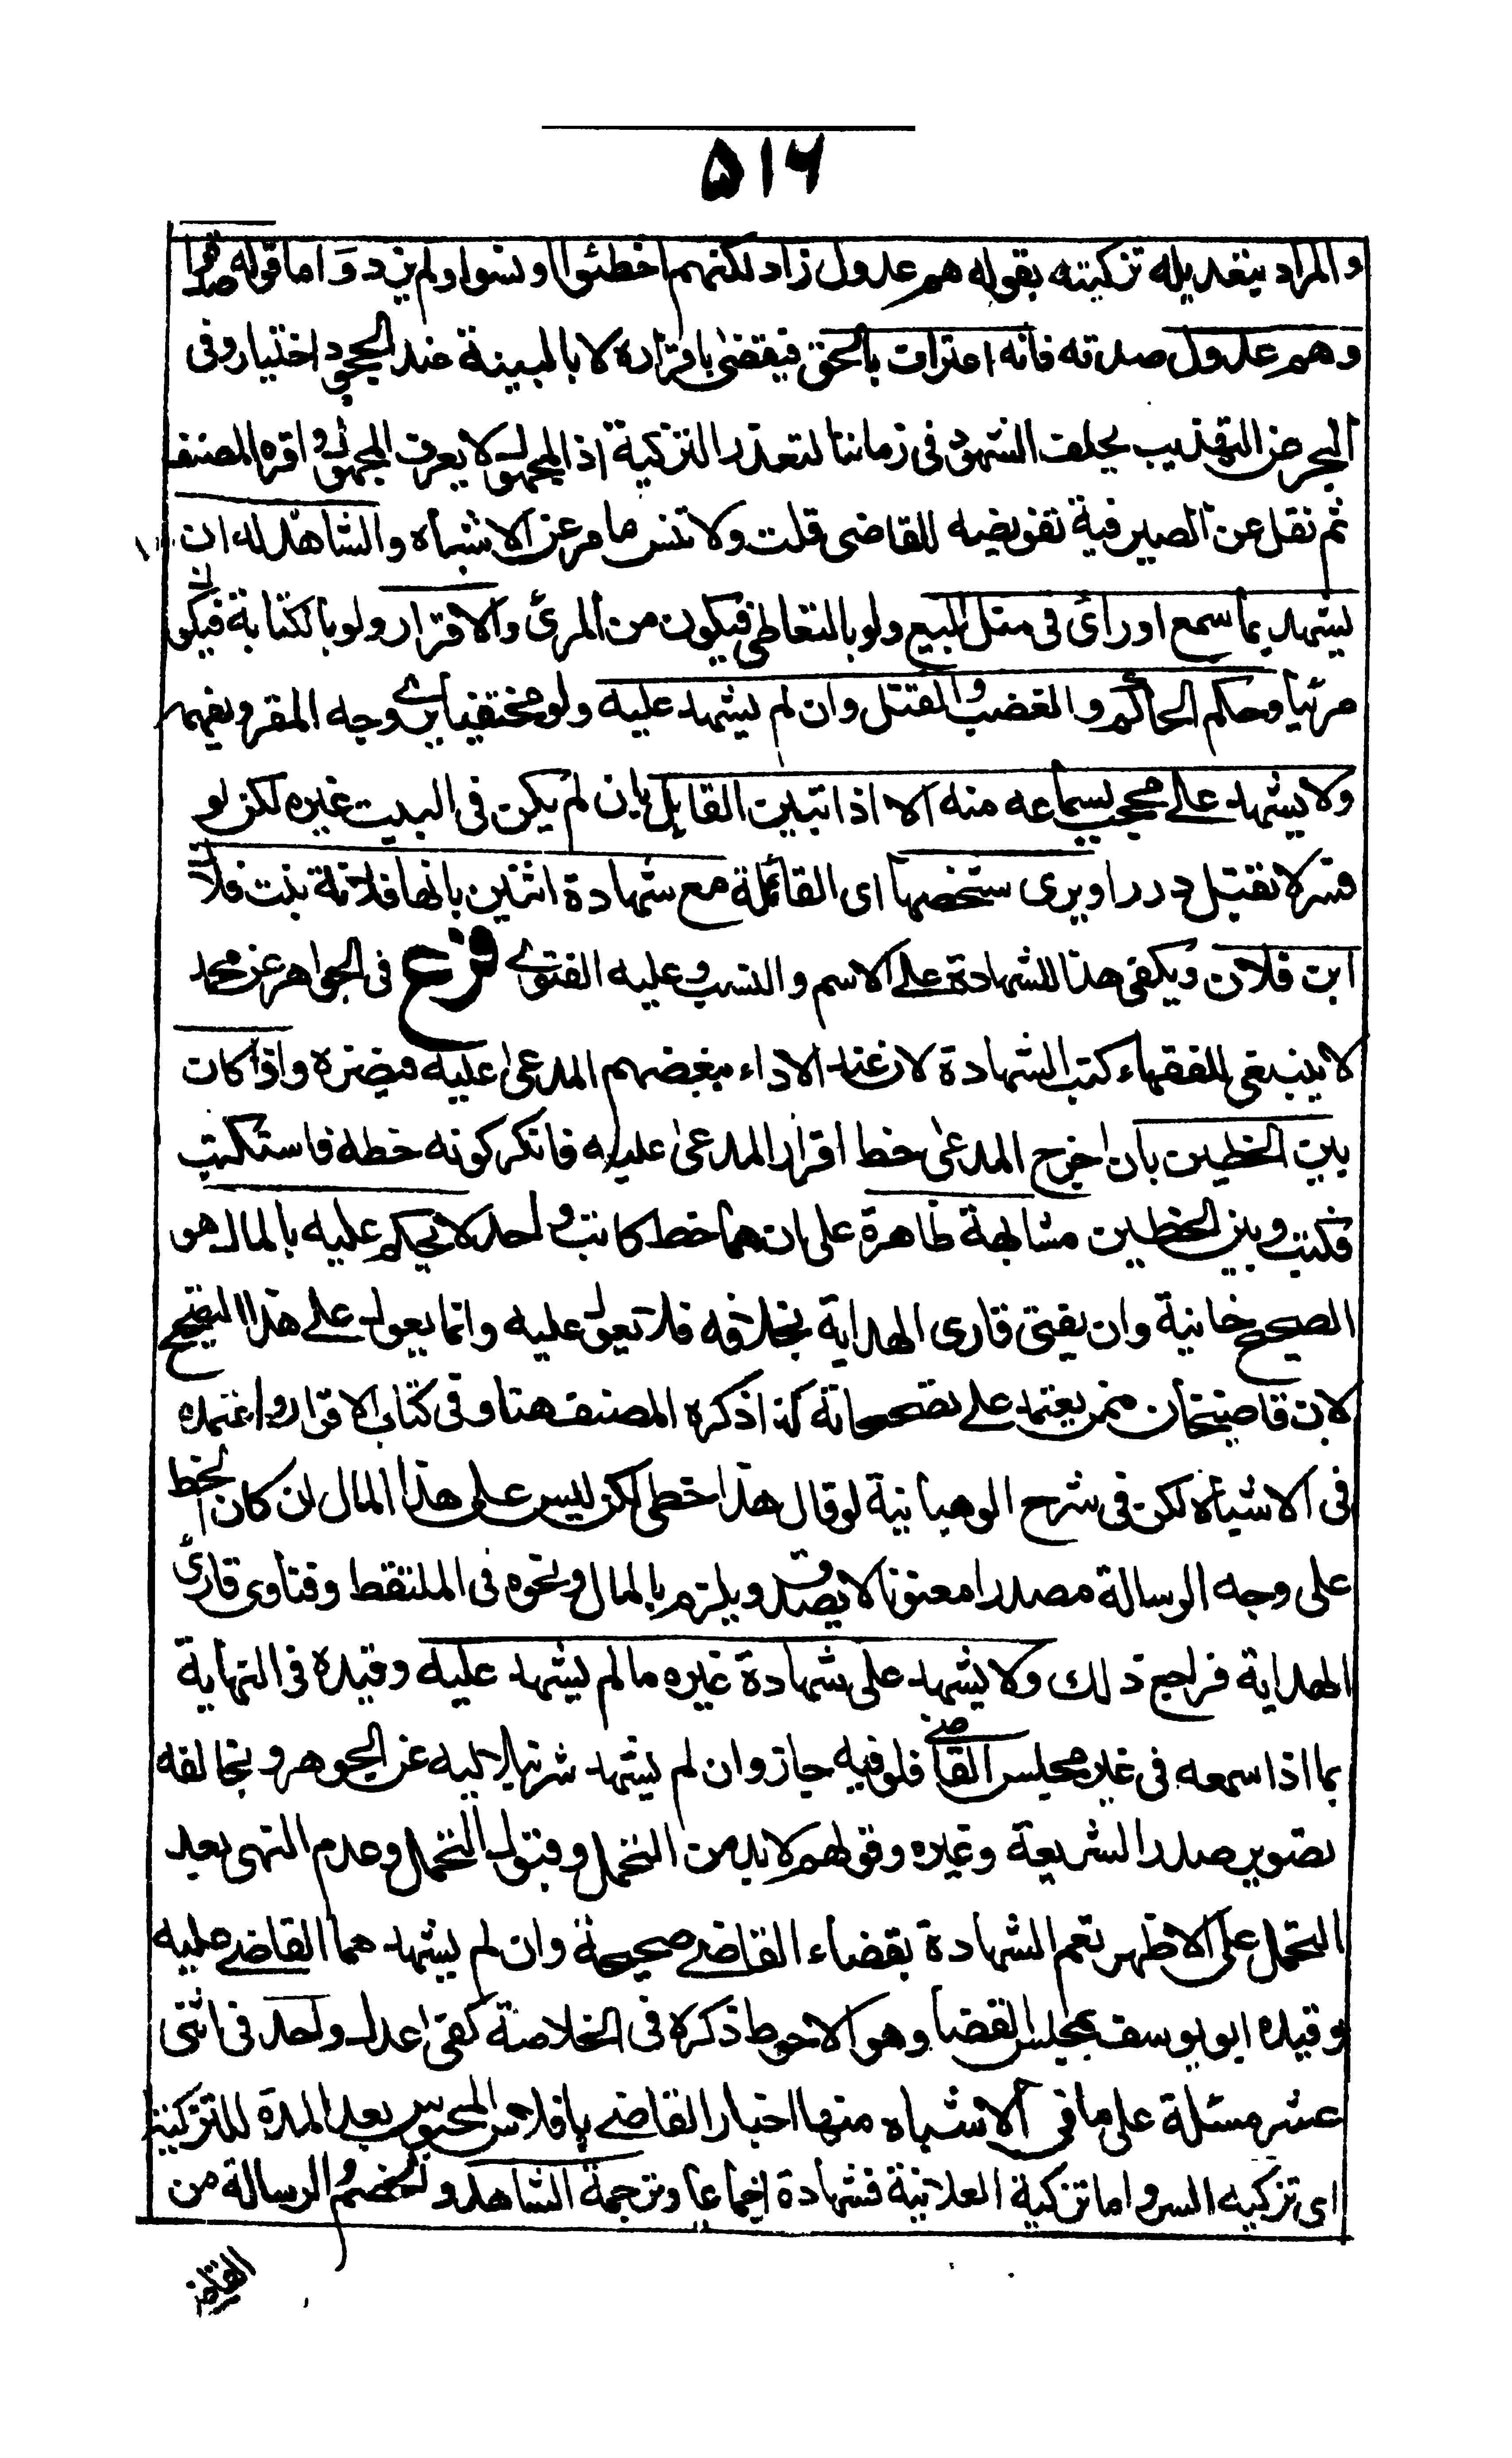 ۵۱۶
والمراد بتعديله تزكيته بقوله هم عدول زاد لكنهم اخطئوا او نسوا او لم يزد واما قوله صدقوا
وهم عدول صدقة فانه اعتراف بالحق فيقضى باقراره لا بالبينة عند الجحود اختيار وفى
البحر عن التهذيب يحلف الشهود فى زماننا لتعذر التزكية اذ المجهول لا يعرف المجهول واقره المصنف
ثم نقل عن الصيرفية تفويضه للقاضى قلت ولا تنس ما مر عن الاشباه والشاهد له ان
يشهد بما سمع او رأى فى مثل البيع ولو بالتعاطى فيكون من المرئ والاقرار ولو بالكتابة فيكون
مرئيا وحكم الحاكم والغضب والقتل وان لم يشهد عليه ولو مختفيا يرى وجه المقر ويفهمه
ولا يشهد على محجب بسماعه منه الا اذا تبين القايل بان لم يكن فى البيت غيره لكن لو
فسر لا تقبل درر او يرى شخصها اى القائلة مع شهادة اثنين بانها فلانة بنت فلان
ابن فلان ويكفى هذا للشهادة على الاسم والنسب وعليه الفتوى فرع فى الجواهر عن محمد
لا ينبغى للفقهاء كتب الشهادة لان عند الاداء يبغضهم المدعى عليه فيضره واذا كان
بين الخطين بان اخرج المدعى خط اقرار المدعى عليه فانكر كونه خطه فاستكتب
فكتب وبين الخطين مشابهة ظاهرة على ان هما خط كاتب واحد لا يحكم عليه بالمال هو
الصحيح خانية وان يفتى قارى الهداية بخلافه فلا تعول عليه وانما يعول على هذا التصحيح
لان قاضيخان ممن يعتمد على تصحيحاته كذا ذكره المصنف هنا وفى كتاب الاقرار واعتمده
فى الاشباه لكن فى شرح الوهبانية لو قال هذا خطى لكن ليس على هذا المال ان كان الخط
على وجه الرسالة مصدرا معنونا لا يصدق ويلزم بالمال ونحوه فى الملتقط وفتاوى قارئ
الهداية فراجع ذلك ولا يشهد على شهادة غيره ما لم يشهد عليه وقيده فى النهاية
بما اذا سمعه فى غير مجلس القاضى فلو فيه جاز وان لم يشهد شرنبلالية عن الجوهر ويخالفه
تصوير صدر الشريعة وغيره وقولهم لابد من التحمل وقبول التحمل وعدم النهى بعد
التحمل على الاظهر نعم الشهادة بقضاء القاضى صحيحة وان لم يشهد هما القاضى عليه
وقيده ابو يوسف بمجلس القضا وهو الاحوط ذكره فى الخلاصة كفى عدل واحد فى اثنى
عشر مسئلة على ما فى الاشباه منها اخبار القاضى بافلاس المحبوس بعد المدة للتزكية
اى تزكيه السر واما تزكية العلانية فشهادة اجماعا وترجمة الشاهد والخصم والرسالة من